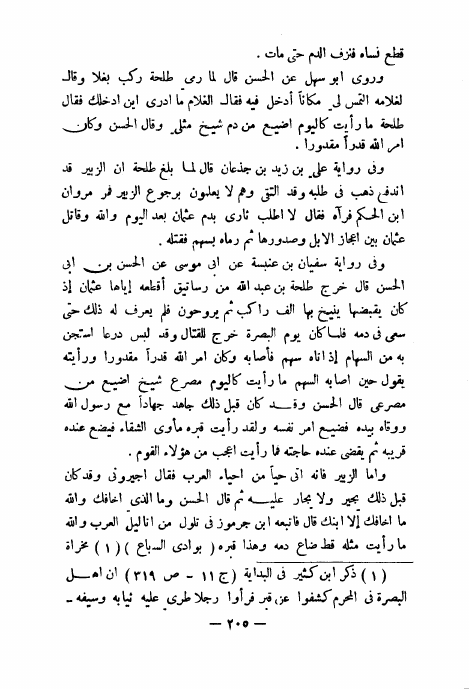 قطع نساه فنزف الدم حتى مات .
وروى ابو سهل عن الحسن قال لما رمى طلحة ركب بغلا وقال
لغلامه التمس لي مكاناً أدخل فيه فقال الغلام ما ادرى اين ادخلك فقال
طلحة ما رأيت كاليوم اضيع من دم شيخ مثلي وقال الحسن وكان
امر الله قدراً مقدورا .
وفى رواية علي بن زيد بن جذعان قال لما بلغ طلحة ان الزبير قد
اندفع ذهب فى طلبه وقد التقى وهم لا يعلمون برجوع الزبير فمر مروان
ابن الحكم فرآه فقال لا اطلب ثارى بدم عثمان بعد اليوم والله وقاتل
عثمان بين اعجاز الابل وصدورها ثم رماه بسهم فقتله .
وفى رواية سفيان بن عنبسة عن ابى موسى عن الحسن بن ابى
الحسن قال خرج طلحة بن عبد الله من رساتيق أقطعه إياها عثمان إذ
كان يقبضها ينيخ بها الف راكب ثم يروحون فلم يعرف له ذلك حتى
سعى فى دمه فلما كان يوم البصرة خرج للقتال وقد لبس درعا استجن
به من السهام إذ اتاه سهم فأصابه وكان امر الله قدراً مقدورا ورأيته
يقول حين اصابه السهم ما رأيت كاليوم مصرع شيخ اضيع من
مصرعى قال الحسن وقد كان قبل ذلك جاهد جهاداً مع رسول الله
ووقاه بيده فضيع امر نفسه ولقد رأيت قبره مأوى الشقاء فيضع عنده
قريبه ثم يقضى عنده حاجته فما رأيت اعجب من هؤلاء القوم .
واما الزبير فانه اتى حياً من احياء العرب فقال اجيرونى وقد كان
قبل ذلك يجير ولا يجار عليه ثم قال الحسن وما الذي اخافك والله
ما اخافك إلا ابنك قال فاتبعه ابن جرموز فى تلول من اتاليل العرب والله
ما رأيت مثله قط ضاع دمه وهذا قبره ( بوادى السباع ) ( ١ ) مخراة
( ١ ) ذكر ابن كثير فى البداية ( ج ١١ – ص ٣١٩ ) ان اهل
البصرة فى المحرم كشفوا عن قبر فرأوا رجلا طري عليه ثيابه وسيفه –
– ٢٠٥ –